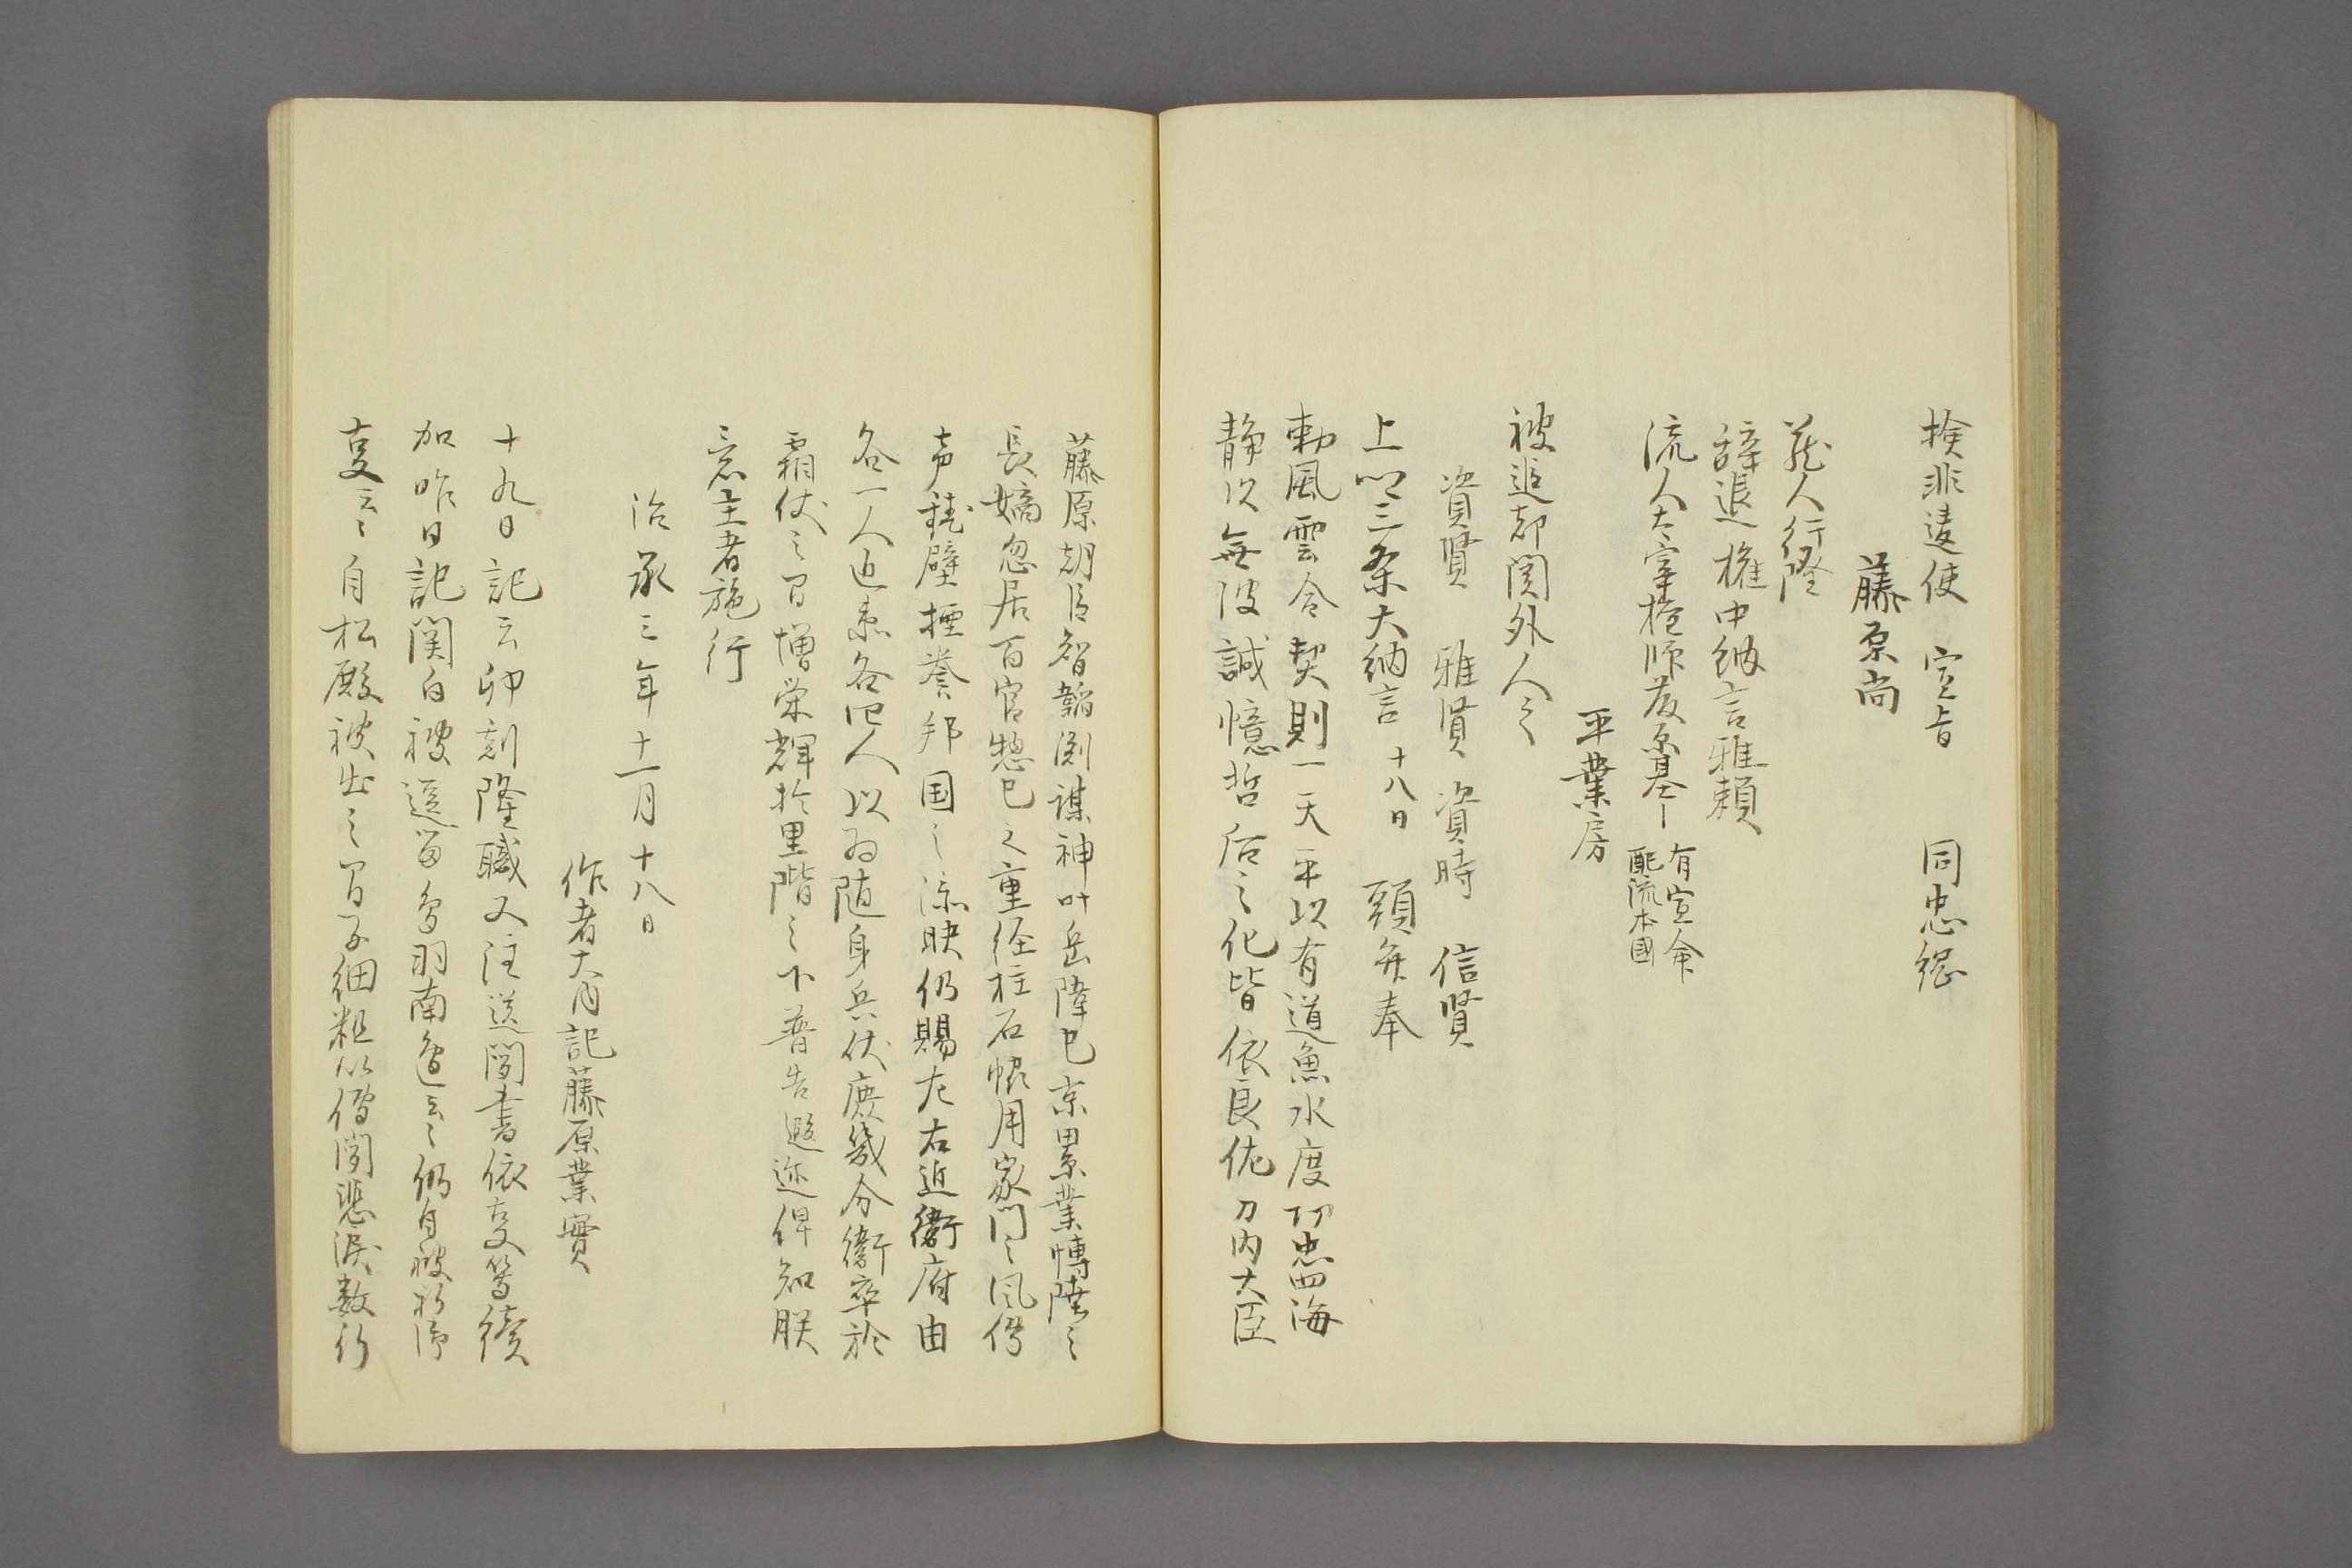 検非違使　宣旨　同忠綱
藤原尚
蔵人行隆
辞退権中納言雅頼
流人太宰権帥藤原基－ 有宣命
配流本國
平業房
被追却関外人々
資賢　雅賢　資時　信賢
上卿三条大納言 十八日　頭弁奉
勅風雲合契則一天平以有道魚水度功忠四海
静以無彼誠憶哲后之化皆依良佐乃内大臣
藤原朝臣智韜渕謀神叶岳降已京累業博陸之
長嫡忽居百官惣已之重任柱石惟用家門之風傳
声塩壁揮誉邦国之涼映仍賜左右近衛府由
各一人近衛各四人以為随身兵仗庶幾分衛卒於
霜仗之間増栄輝於黒階之下普告遐迩俾知朕
意主者施行
治承三年十一月十八日
作者大内記藤原業實
十九日記云卯刻隆職又注送聞書依旁等續
加昨日記関白被逗留鳥羽南邊云々仍自被
旁云々自松殿被出之間子細粗以傳聞悲涙数行